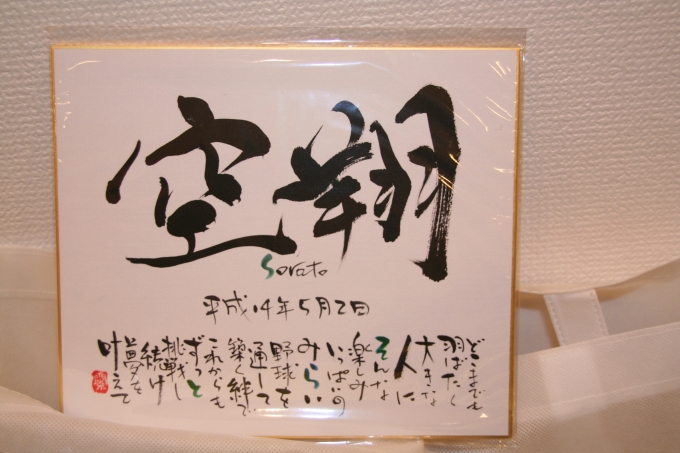 空翔
Sorato
平成14年5月2日
どこまでも
羽ばたく
大きな
人に
そんな
楽しみ
いっぱいの
みらい
野球を
通して
築く絆で
これからも
ずっと
挑戦し
続け
夢を
叶えて